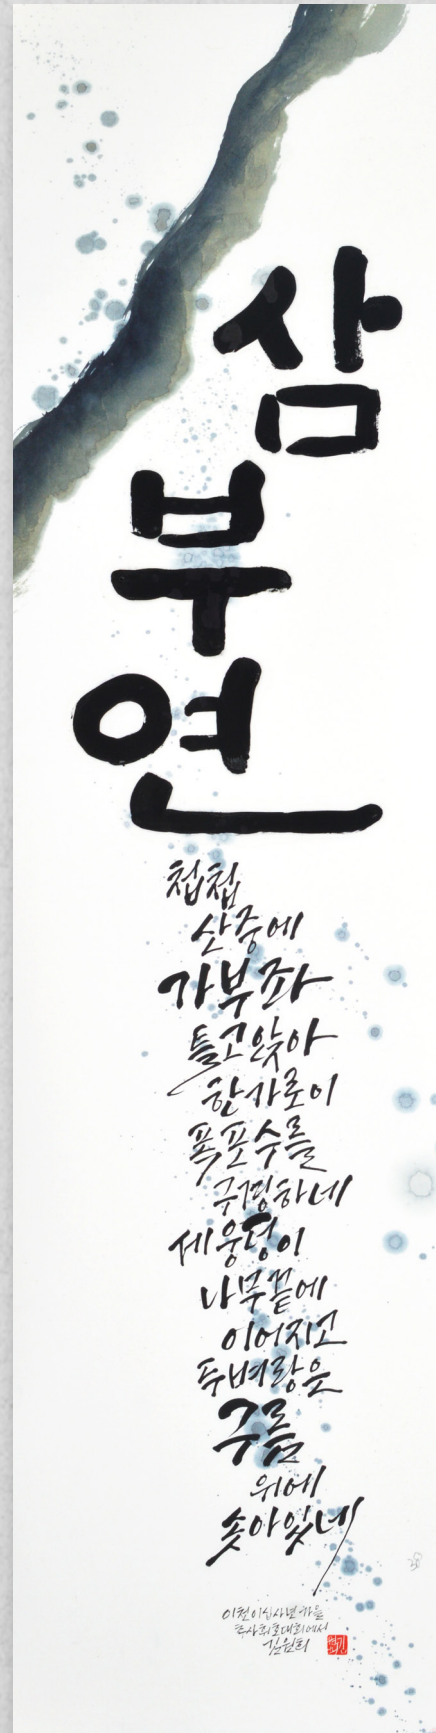 삼
부
연
첩첩
산중에
가부좌
틀고앉아
한가로이
폭포수를
구경하네
세웅덩이
나무끝에
이어지고
두벼랑은
구름
위에
솟아있네
이천이십사년 가을
휘호대회에서
김원희